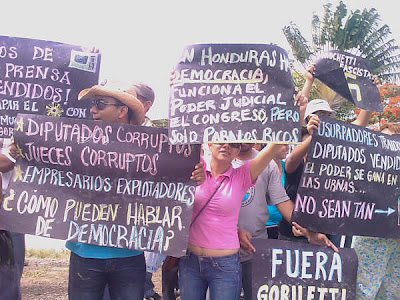 OS DE
PRENSA
VENDIDOS!
EN HONDURAS HAY
DEMOCRACIA,
FUNCIONA EL
PODER JUDICIAL
EL CONGRESO, PERO
SOLO PARA LOS
RICOS
DIPUTADOS CORRUPTOS
JUECES CORRUPTOS
EMPRESARIOS EXPLOTADORES
¿CÓMO PUEDEN HABLAR
DE DEMOCRACIA?
USURPADORES
DIPUTADOS
EL PODER SE GANA EN
LAS URNAS...
NO SEAN TAN
FUERA
GORILETTI